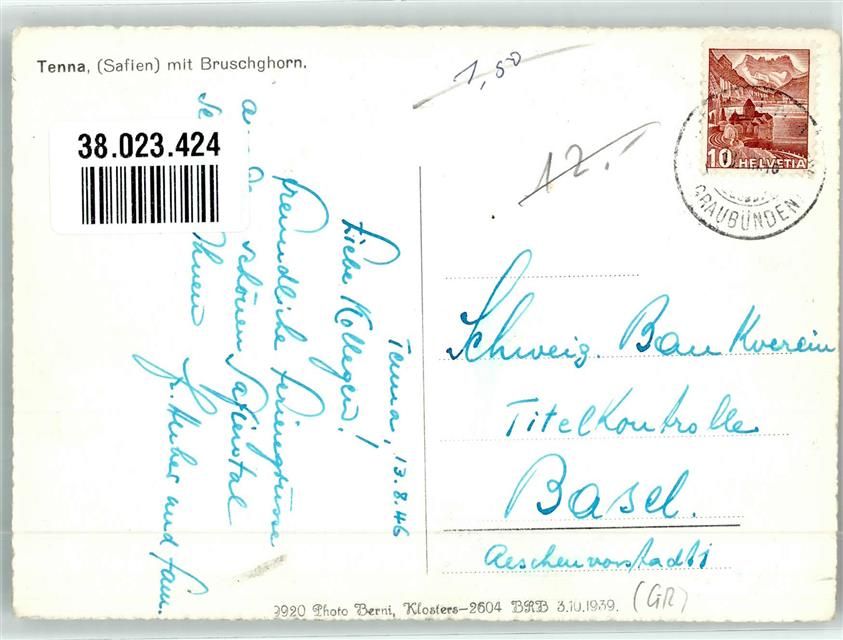 Tenna, (Safien) mit Bruschghorn.
1,50
12.-
38.023.424
10 HELVETIA
GRAUBÜNDEN
Tenna, 13.8.46
Liebe Kollegen!
freundliche Feriengrüsse
a schönen Safiental
se Ihnen
Fr. Huber und Fam.
Schweiz. Bankverein
Titelkontrolle
Basel.
Aeschenvorstadt 1
3920 Photo Berni, Klosters-2604 BRB 3.10.1939.
(GR)